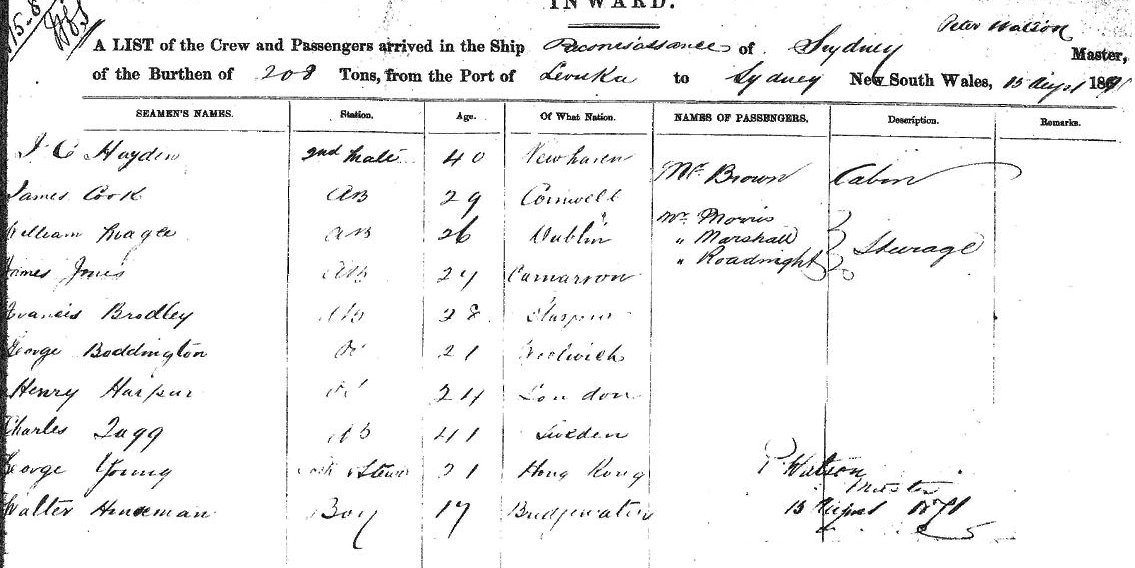 INWARD.
15-8
Peter Watson
A LIST of the Crew and Passengers arrived in the Ship Reconnaissance of Sydney Master,
of the Burthen of 208 Tons, from the Port of Levuka to Sydney New South Wales, 15 Augst 1871
SEAMEN'S NAMES. Station. Age. Of What Nation. NAMES OF PASSENGERS. Description. Remarks.
J C Hayden 2nd Mate 40 Newhaven Mr. Brown Cabin
James Cook AB 29 Cornwell
Mr. Morris
William Magee AB 26 Dublin " Marshall Steerage
" Roadnight
James Jones AB 24 Carnarvon
Francis Bradley AB 28 Glasgow
George Boddington 21 Woolwich
Henry Harpur 24 London
Charles Tagg AB 41 Sweden
George Young Cook & Stewd 21 Hong Kong P Watson
Master
Walter Boy 17 Bridgewater 15 August 1871